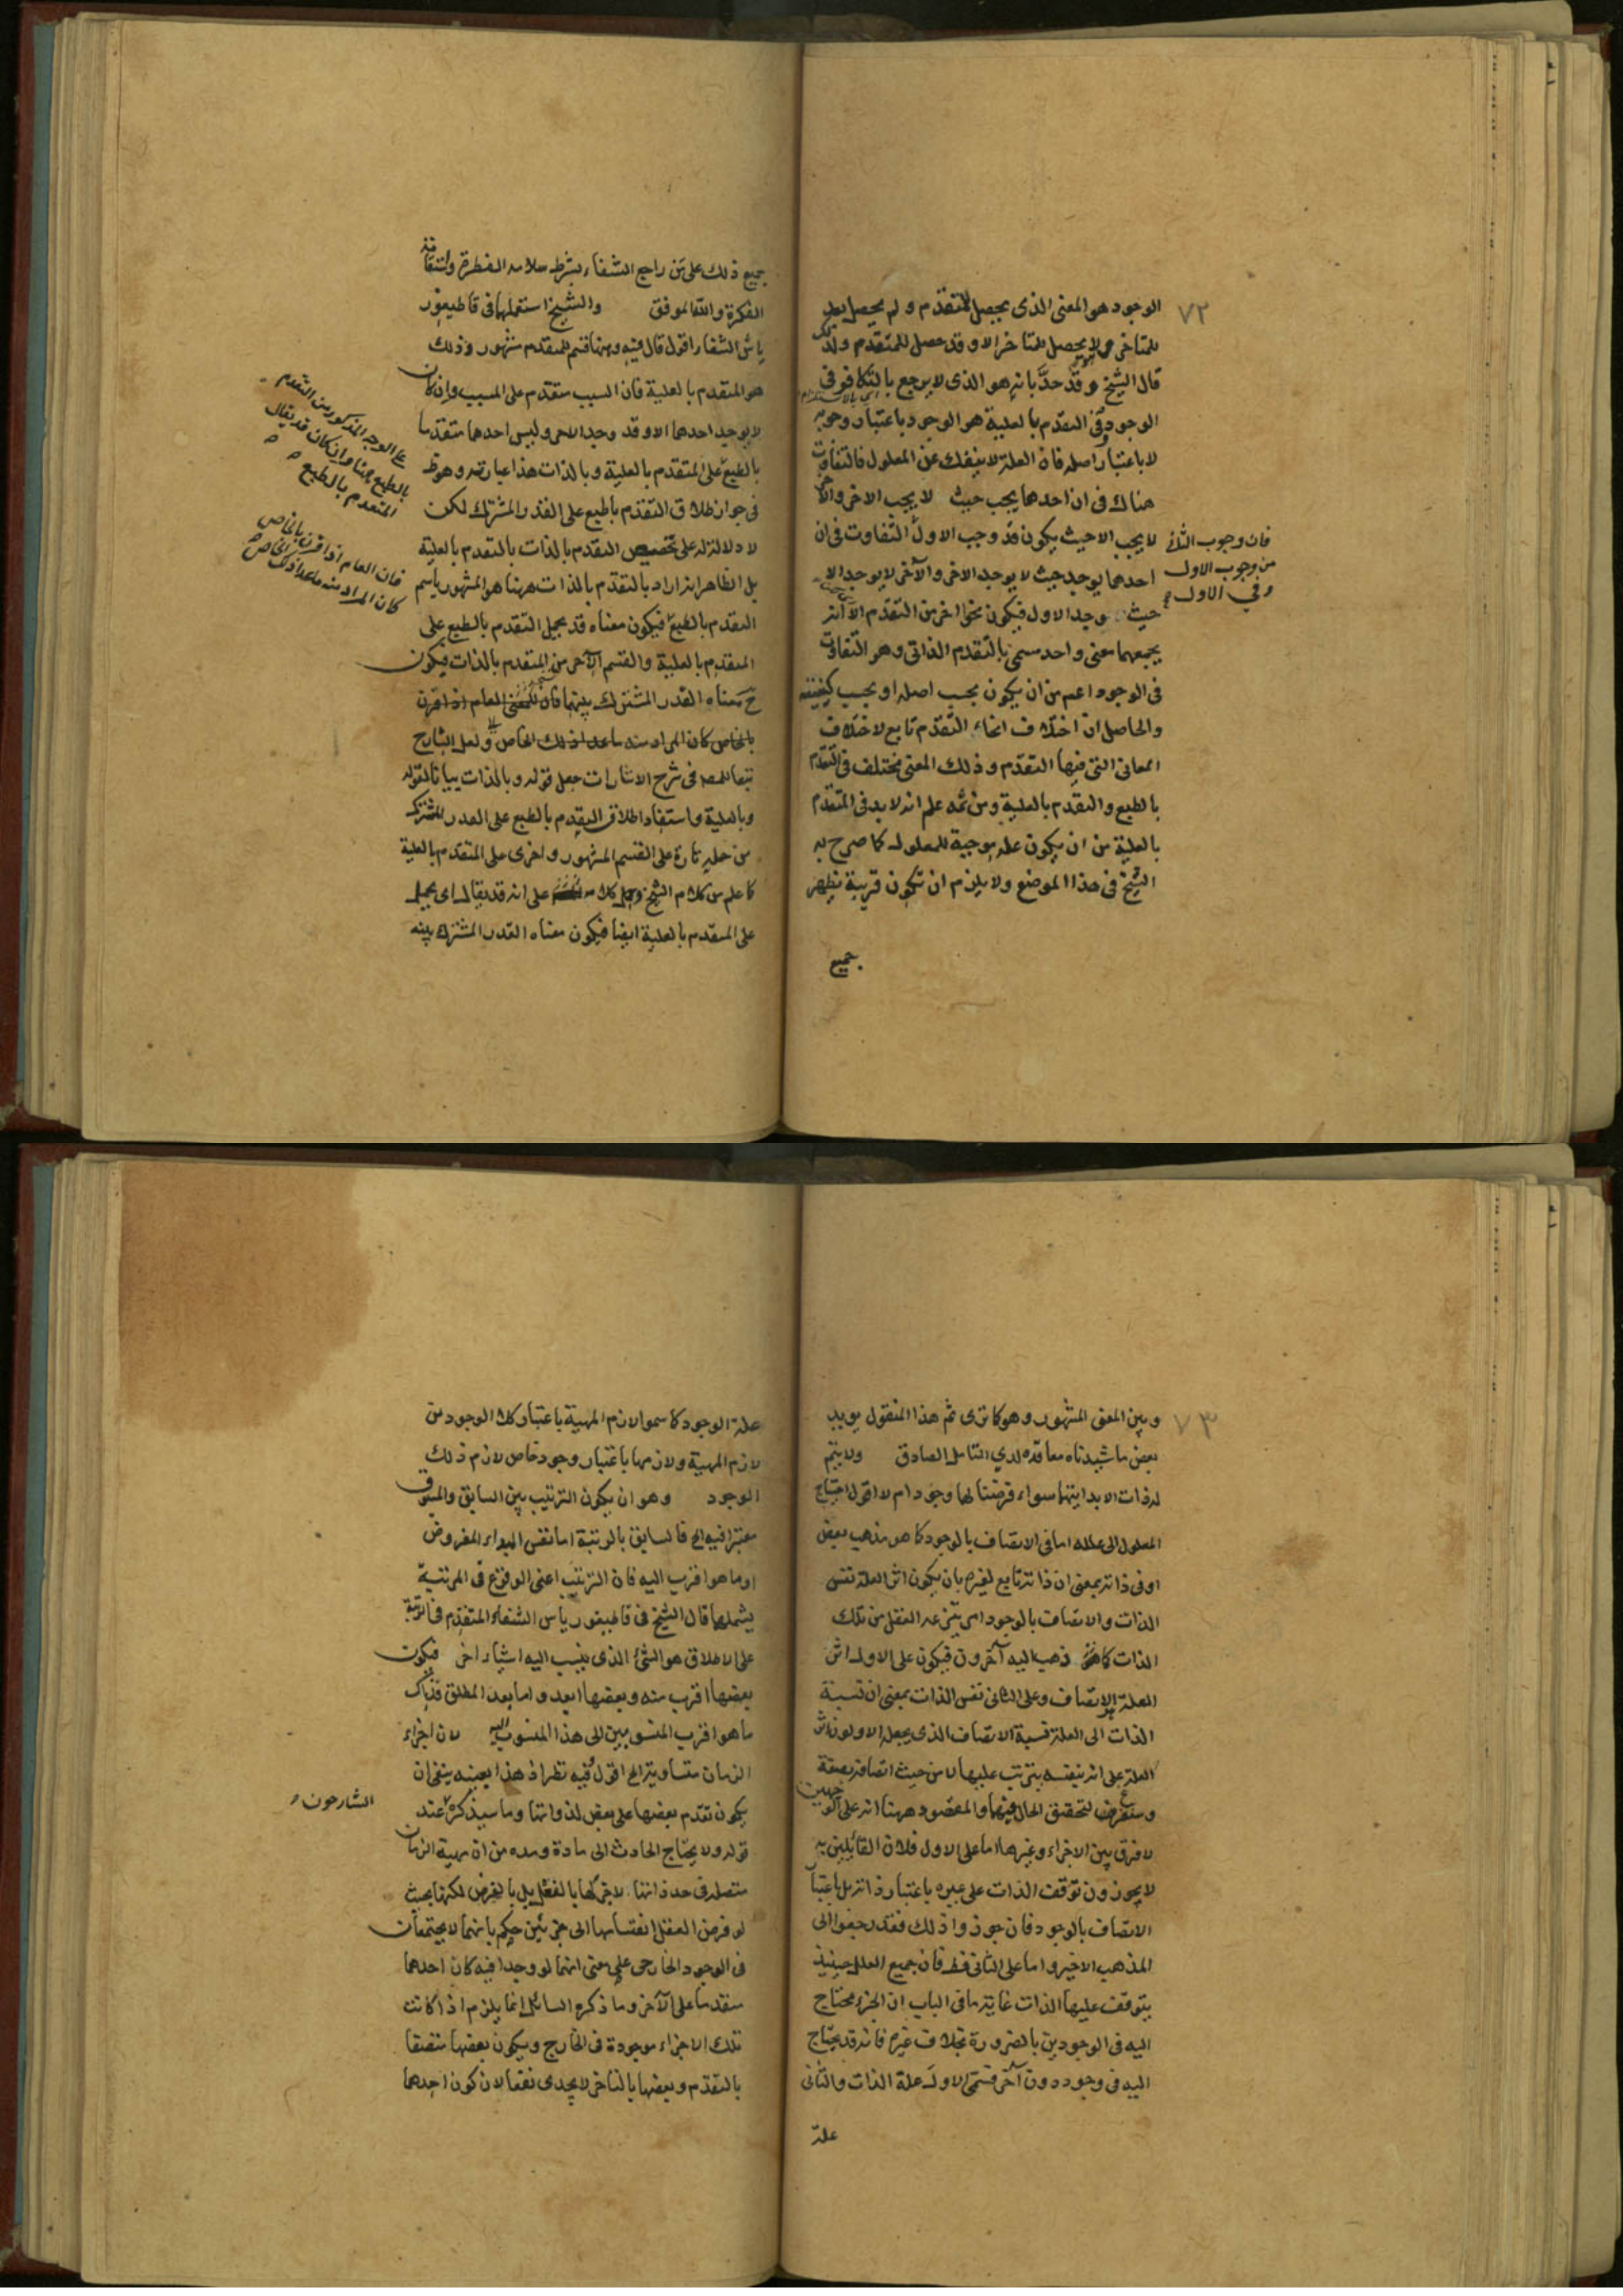 ٧٢
الوجود هو المعنى الذى يحصل للمتقدم و لم يحصل بعد
للمتاخر و لا يحصل للمتاخر الا و قد حصل للمتقدم و لذلك
قال الشيخ و قد حدّ بانه هو الذى لا يرجع بالتكافو فى
الوجود و فى التقدم بالعلية هو الوجود باعتبار وجوبه
لا باعتبار اصله فان العلة لا ينفك عن المعلول فالتفاوت
هناك فى ان احدهما يجب حيث لا يجب الاخر و الاخر
لا يجب الا حيث يكون قد وجب الاول التفاوت فى ان
احدهما يوجد حيث لا يوجد الاخر و الآخر لا يوجد الا
حيث وجد الاول فيكون نحوا اخر من التقدم الا انه
يجمعهما معنى واحد سمى بالتقدم الذاتى و هو التفاوت
فى الوجود اعم من ان يكون بحسب اصله او بحسب كيفيته
و الحاصل ان اختلاف انحاء التقدم تابع لاختلاف
المعانى التى فيها التقدم و ذلك المعنى مختلف فى التقدم
بالطبع و التقدم بالعلية و من ثمه علم انه لا بد فى المتقدم
بالعلية من ان يكون علة موجبة للمعلول كما صرح به
الشيخ فى هذا الموضع و لا يلزم ان تكون قريبة يظهر
جميع
فان وجوب الثانى
من وجوب الاول
و فى الاول
جميع ذلك على من راجع الشفاء بشرط سلامة الفطرة و استقامة
الفكرة و الله الموفق و الشيخ استعملها فى قاطيغور
ياس الشفا اقول قال فيه و ههنا قسم للمتقدم مشهور و ذلك
هو المتقدم بالعلية فان السبب متقدم على المسبب و ان كان
لا يوجد احدهما الا و قد وجد الاخر و ليس احدهما متقدما
بالطبع على المتقدم بالعلية و بالذات هذا عبارته و هو ظ
فى جواز اطلاق التقدم بالطبع على القدر المشترك لكن
لا دلالة له على تخصيص التقدم بالذات بالتقدم بالعلية
بل الظاهر انه اراد بالتقدم بالذات ههنا هو المشهور باسم
التقدم بالطبع فيكون معناه قد يحمل التقدم بالطبع على
المتقدم بالعلية و القسم الآخر من المتقدم بالذات فيكون
ح معناه القدر المشترك بينهما فان المعنى العام اذا قرن
بالخاص كان المراد منه ما عدا ذلك الخاص و لعل الشارح
تبعا للمص فى شرح الاشارات جعل قوله و بالذات بيانا لقوله
و بالعلية و استفاد اطلاق التقدم بالطبع على القدر المشترك
من حمله تارة على القسم المشهور و اخرى على المتقدم بالعلية
كما علم من كلام الشيخ و حمل كلامه على انه قد يقال اى يحمل
على المتقدم بالعلية ايضا فيكون معناه القدر المشترك بينه
على الوجه المذكور من التقدم
بالطبع ههنا و ان كان قد يقال
المتقدم بالطبع
فان العام اذا قرن بالخاص
كان المراد منه ما عدا ذلك الخاص
٧٣
و بين المعنى المشهور و هو كما ترى ثم هذا المنقول يويد
بعض ما شيدناه معاقده لدى التامل الصادق و لا يتم
لذوات الا بدايتها سواء فرضتا لها وجود ام لا اقول احتياج
المعلول الى علله اما فى الاتصاف بالوجود كما هو مذهب بعض
او فى ذاته بمعنى ان ذاته تابع لغيره بان يكون اثر العلة نفس
الذات و الاتصاف بالوجود امر ينتزعه العقل من تلك
الذات كما ذهب اليه آخرون فيكون على الاول اثر
العلة الاتصاف و على الثانى نفس الذات بمعنى ان نسبة
الذات الى العلة نسبة الاتصاف الذى يجعله الاولون اثر
العلة على انه بنفسه يترتب عليها لا من حيث اتصافه بصفة
و ستعرض لتحقيق الحال فيهما و المقصود ههنا انه على الوجهين
لا فرق بين الاجزاء و غيرها اما على الاول فلان القائلين به
لا يجوزون توقف الذات على غيره باعتبار ذاته بل باعتبار
الاتصاف بالوجود فان جوزوا ذلك فقد رجعوا الى
المذهب الاخير و اما على الثانى فظ فان جميع العلل حينئذ
يتوقف عليها الذات غاية ما فى الباب ان الجزء محتاج
اليه فى الوجودين بالضرورة بخلاف غيره فانه قد يحتاج
اليه فى وجود دون آخر فسمى الاول علة الذات و الثانى
علة
علة الوجود كما سموا لازم المهية باعتبار كلا الوجودين
لازم المهية و لازمها باعتبار وجود خاص لازم ذلك
الوجود و هو ان يكون الترتيب بين السابق و المسبوق
معتبرا فيه الخ فالسابق بالرتبة اما نفس المبداء المفروض
او ما هو اقرب اليه فان الترتيب اعنى الوقوع فى المرتبة
يشملها قال الشيخ فى قاطيغورياس الشفاء المتقدم فى المرتبة
على الاطلاق هو الشئ الذى ينسب اليه اشياء اخر فيكون
بعضها اقرب منه و بعضها ابعد و اما بعد المطلق فذاك
ما هو اقرب المنسوبين الى هذا المنسوب اليه لان اجزاء
الزمان متساوية الخ اقول فيه نظر اذ هذا بعينه ينفى ان
يكون تقدم بعضها على بعض لذواتها و ما سيذكره عند
قوله و لا يحتاج الحادث الى مادة و مدة من ان مهية الزمان
متصلة فى حد ذاتها لا جزء لها بالفعل بل بالفرض لكنها بحيث
لو فرض العقل انقسامها الى جزئين حكم بانهما لا يجتمعان
فى الوجود الخارجى على معنى انهما لو وجدا فيه كان احدهما
متقدما على الآخر و ما ذكره السائل انما يلزم اذا كانت
تلك الاجزاء موجودة فى الخارج و يكون بعضها متصفا
بالتقدم و بعضها بالتاخر لا يجدى نفعا لان كون احدهما
الشارحون